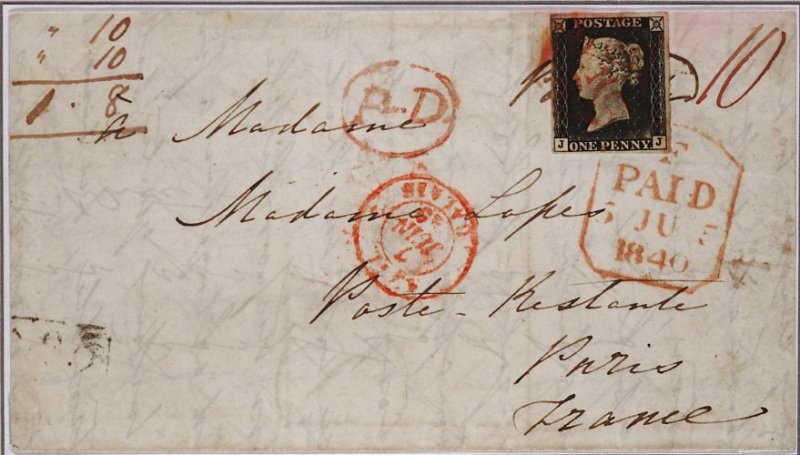 " 10
" 10
1 . 8
POSTAGE
J ONE PENNY J
10
P.D.
à Madame
Madame Lopes
Poste - Restante
Paris
France
PAID
5 JU 5
1840
CALAIS
7
JUIN